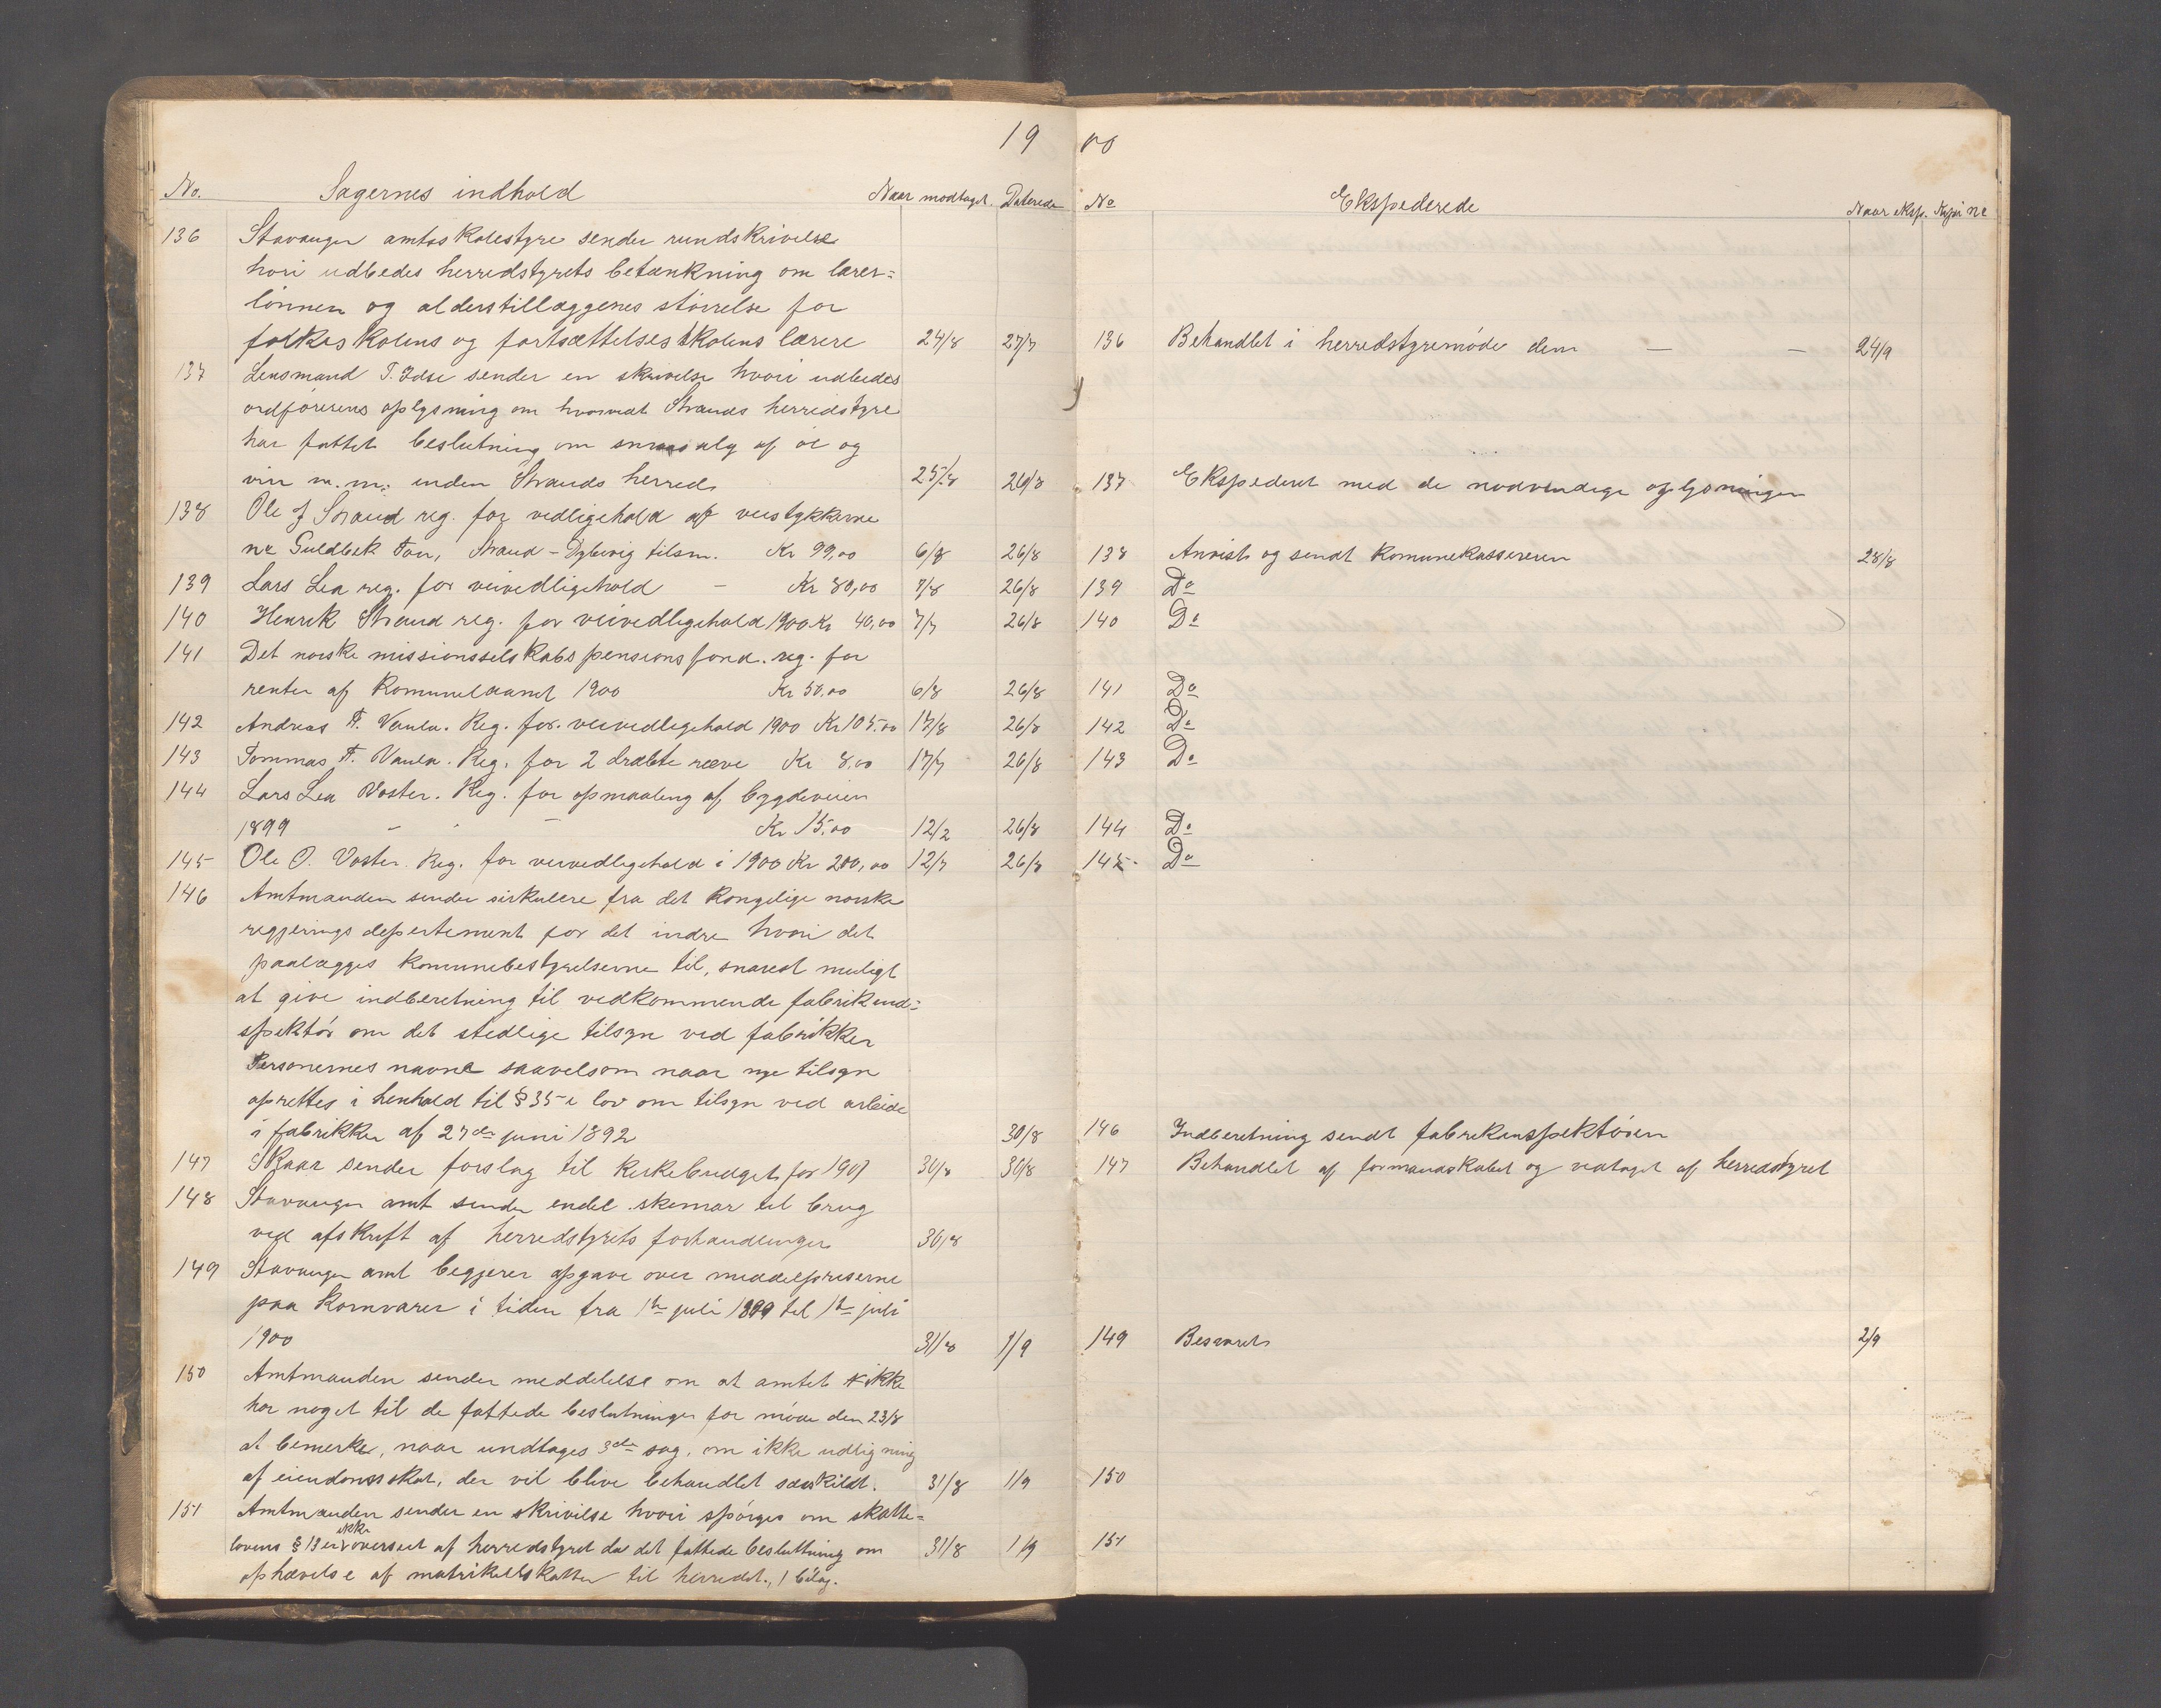 19
No. Sagernes indhold Naar modtaget. Daterede
136 Stavanger amtsskolestyre sender rundskrivelse
hvori udbedes herredstyrets betænkning om lærer=
lönnen og alderstillæggenes störrelse for
folkeskolens og fortsættelsesskolens lærere 24/8 27/7
137 Lensmand T. Idse sender en skrivelse hvori udbedes
ordförerens oplysning om hvorvidt Strands herredstyre
har fattet beslutning om smaasalg af öl og
vin m.m. inden Strands herred 25/8 26/8
138 Ole J Strand reg. for vedligehold af veistykkerne
nr Guldbek Tou, Strand - Dybevig tilsm. Kr 99,00 6/8 26/8
139 Lars Lea reg. for veivedligehold - Kr 80,00 7/8 26/8
140 Henrik Strand reg. for veivedligehold 1900 Kr 40,00 7/7 26/8
141 Det norske missionsselskabs pensionsfond. reg. for
renter af Kommunelaanet 1900 Kr 50,00 6/8 26/8
142 Andreas T. Vaula. Reg. for veivedligehold 1900 Kr 105.00 17/8 26/8
143 Tommas T. Vaula. Reg. for 2 dræbte ræve Kr 8,00 17/7 26/8
144 Lars Lea Voster. Reg. for opmaaling af bygdeveien
1899 - - Kr 15,00 12/2 26/8
145 Ole O. Voster. Reg. for veivedligehold i 1900 Kr 200,00 12/7 26/8
146 Amtmanden sender sirkulere fra det kongelige norske
regjerings departement for det indre hvori det
paalægges komunebestyrelserne til, snarest muligt
at give indberetning til vedkommende fabrikind=
spektör om det stedlige tilsyn ved fabrikker
Personernes navne saavelsom naar nye tilsyn
oprettes i henhold til § 35 i lov om tilsyn ved arbeide
i fabrikker af 27de juni 1892 30/8
147 Skaar sender forslag til kirkebudget for 1901 30/8 30/8
148 Stavanger amt sender endel skemar til brug
ved afskrift af herredstyrets forhandlinger 30/8
149 Stavanger amt begjerer opgave over meddelpriserne
paa kornvarer i tiden fra 1te juli 1899 til 1te juli
1900 31/8 1/9
150 Amtmanden sender meddelelse om at amtet ikke
har noget til de fattede beslutninger for möde den 23/8
at bemerke, naar undtages 3die sag, om ikke udligning
af eiendomsskat, der vil blive behandlet særskildt. 31/8 1/9
151 Amtmanden sender en skrivelse hvori spörges om skatte=
lovens § 13 er ikke overseet af herredstyret da det fattede beslutning om 31/8 1/9
ophævelse af matrikelskatten til herredet., 1 bilag.
00
No Ekspederede Naar eksp. Kopi nr
136 Behandlet i herredstyremöde den — — 24/9
137 Ekspederet med de nodvendige oplysninger
138 Anvist og sendt Komunekassereren 28/8
139 Do
140 Do
141 Do
142 Do
143 Do
144 Do
145 Do
146 Indberetning sendt fabrikinspektören
147 Behandlet af formandskabet og vedtaget af herredstyret
149 Besvaret 2/9
150
151